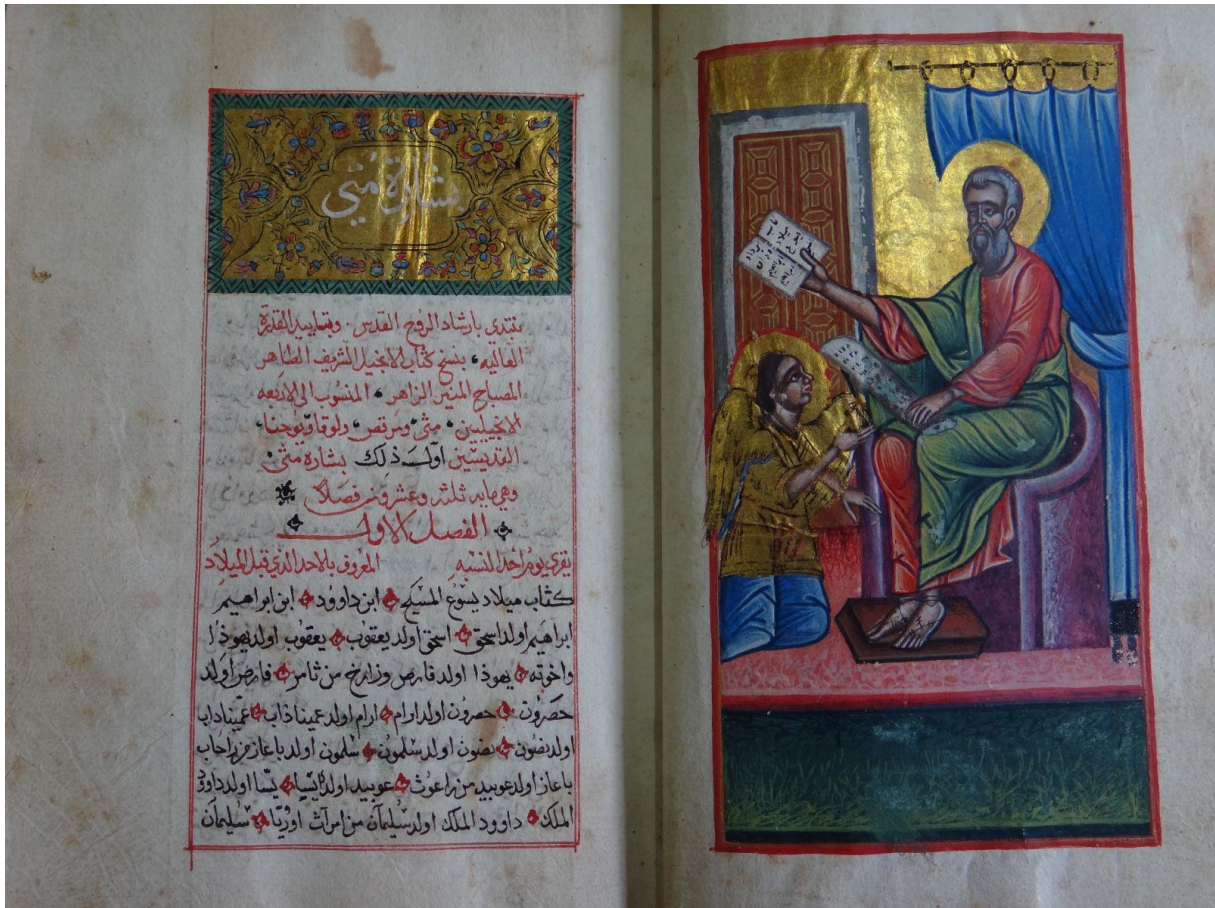 بشارة متي
نبتدي بارشاد الروح القدس وبتاييد القدرة
العاليه، بنسخ كتاب الانجيل الشريف الطاهر
المصباح المنير الزاهر، المنسوب الى الاربعه
الانجيليين، متى ومرقص، ولوقا ويوحنا،
القديسين اول ذلك بشارة متى
وهي مايه ثلثه وعشرون فصلا
الفصل الاول
يقرى يوم احد النسبه المعروف بالاحد الذي قبل الميلاد
كتاب ميلاد يسوع المسيح ابن داوود ابن ابراهيم
ابراهيم اولد اسحق اسحق اولد يعقوب يعقوب اولد يهوذا
واخوته يهوذا اولد فارص وزارخ من ثامر فارص اولد
حصرون حصرون اولد ارام ارام اولد عميناداب عميناداب
اولد نصون نصون اولد سلمون سلمون اولد باعاز من راحاب
باعاز اولد عوبيد من راعوث عوبيد اولد ايسيا يسا اولد داوود
الملك داوود الملك اولد سليمان من امرآت اوريا سليمان